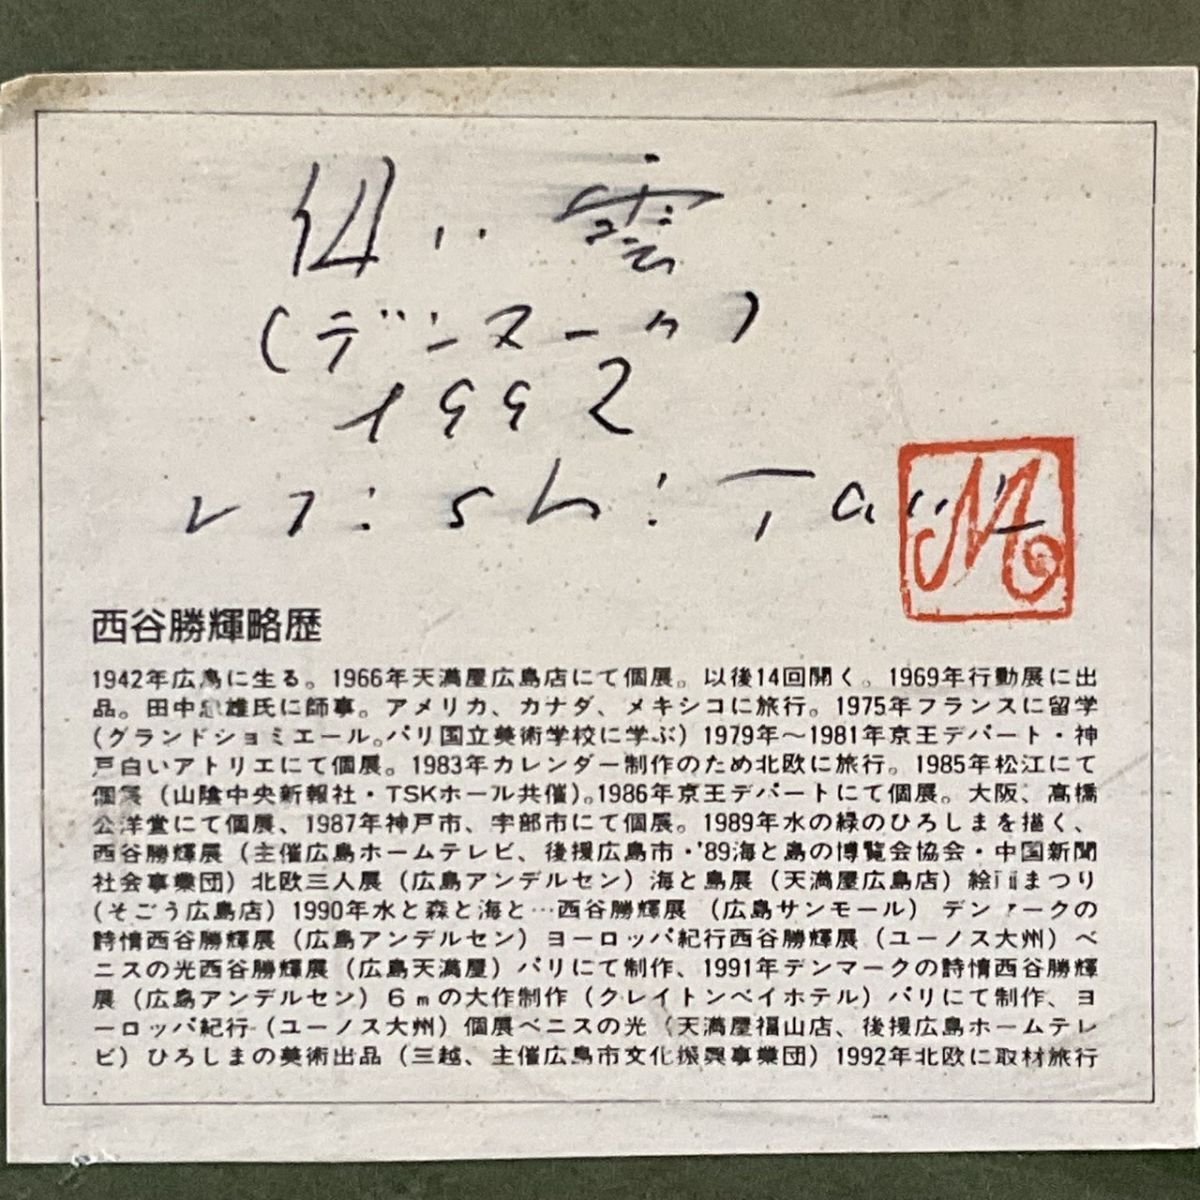 い雲
(デンマーク)
1992
nishiTani
M
西谷勝輝略歴
1942年広島に生る。1966年天満屋広島店にて個展。以後14回開く。1969年行動展に出
品。田中忠雄氏に師事。アメリカ、カナダ、メキシコに旅行。1975年フランスに留学
(グランドショミエール。パリ国立美術学校に学ぶ)1979年〜1981年京王デパート・神
戸白いアトリエにて個展。1983年カレンダー制作のため北欧に旅行。1985年松江にて
個展(山陰中央新報社・TSKホール共催)。1986年京王デパートにて個展。大阪、高橋
公洋堂にて個展、1987年神戸市、宇部市にて個展。1989年水の緑のひろしまを描く、
西谷勝輝展(主催広島ホームテレビ、後援広島市・'89海と島の博覧会協会・中国新聞
社会事業団)北欧三人展(広島アンデルセン)海と島展(天満屋広島店)絵画まつり
(そごう広島店)1990年水と森と海と…西谷勝輝展(広島サンモール)デンマークの
詩情西谷勝輝展(広島アンデルセン)ヨーロッパ紀行西谷勝輝展(ユーノス大州)ベ
ニスの光西谷勝輝展(広島天満屋)パリにて制作、1991年デンマークの詩情西谷勝輝
展(広島アンデルセン)6mの大作制作(クレイトンベイホテル)パリにて制作、ヨ
ーロッパ紀行(ユーノス大州)個展ベニスの光(天満屋福山店、後援広島ホームテレ
ビ)ひろしまの美術出品(三越、主催広島市文化振興事業団)1992年北欧に取材旅行